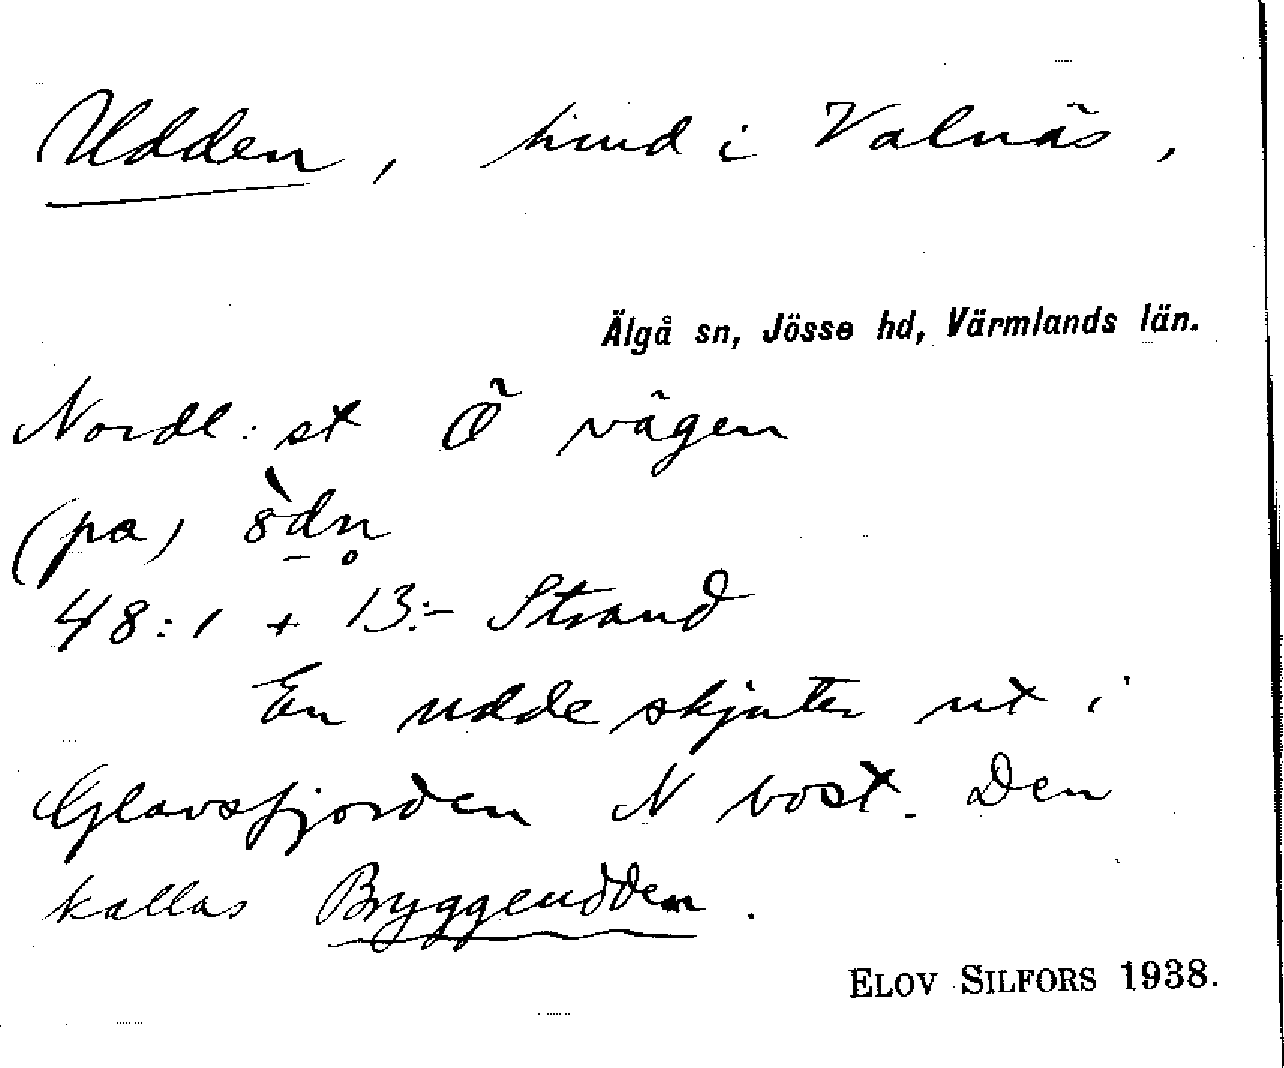 Udden, hmd i Valnäs,
Älgå sn, Jösse hd, Värmlands län.
Nordl: st Ö vägen
(pa)
48:1 + 13:- Strand
En udde skjuter ut i
Glavsfjorden N bost. Den
kallas Bryggeudden.
ELOV SILFORS 1938.